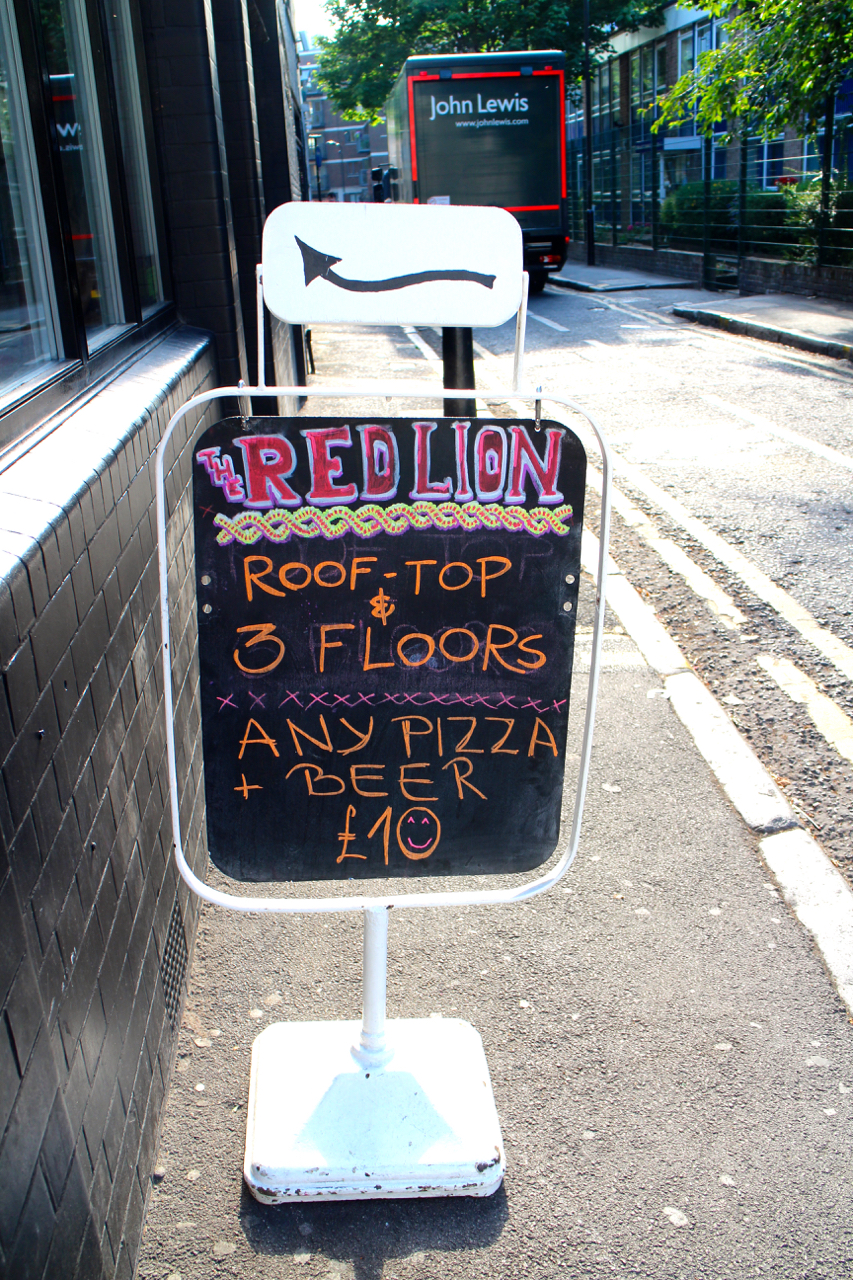 John Lewis
www.johnlewis.com
THE RED LION
ROOF-TOP
&
3 FLOORS
xxxxxxxxxxxxxxxxx
ANY PIZZA
+ BEER
£10